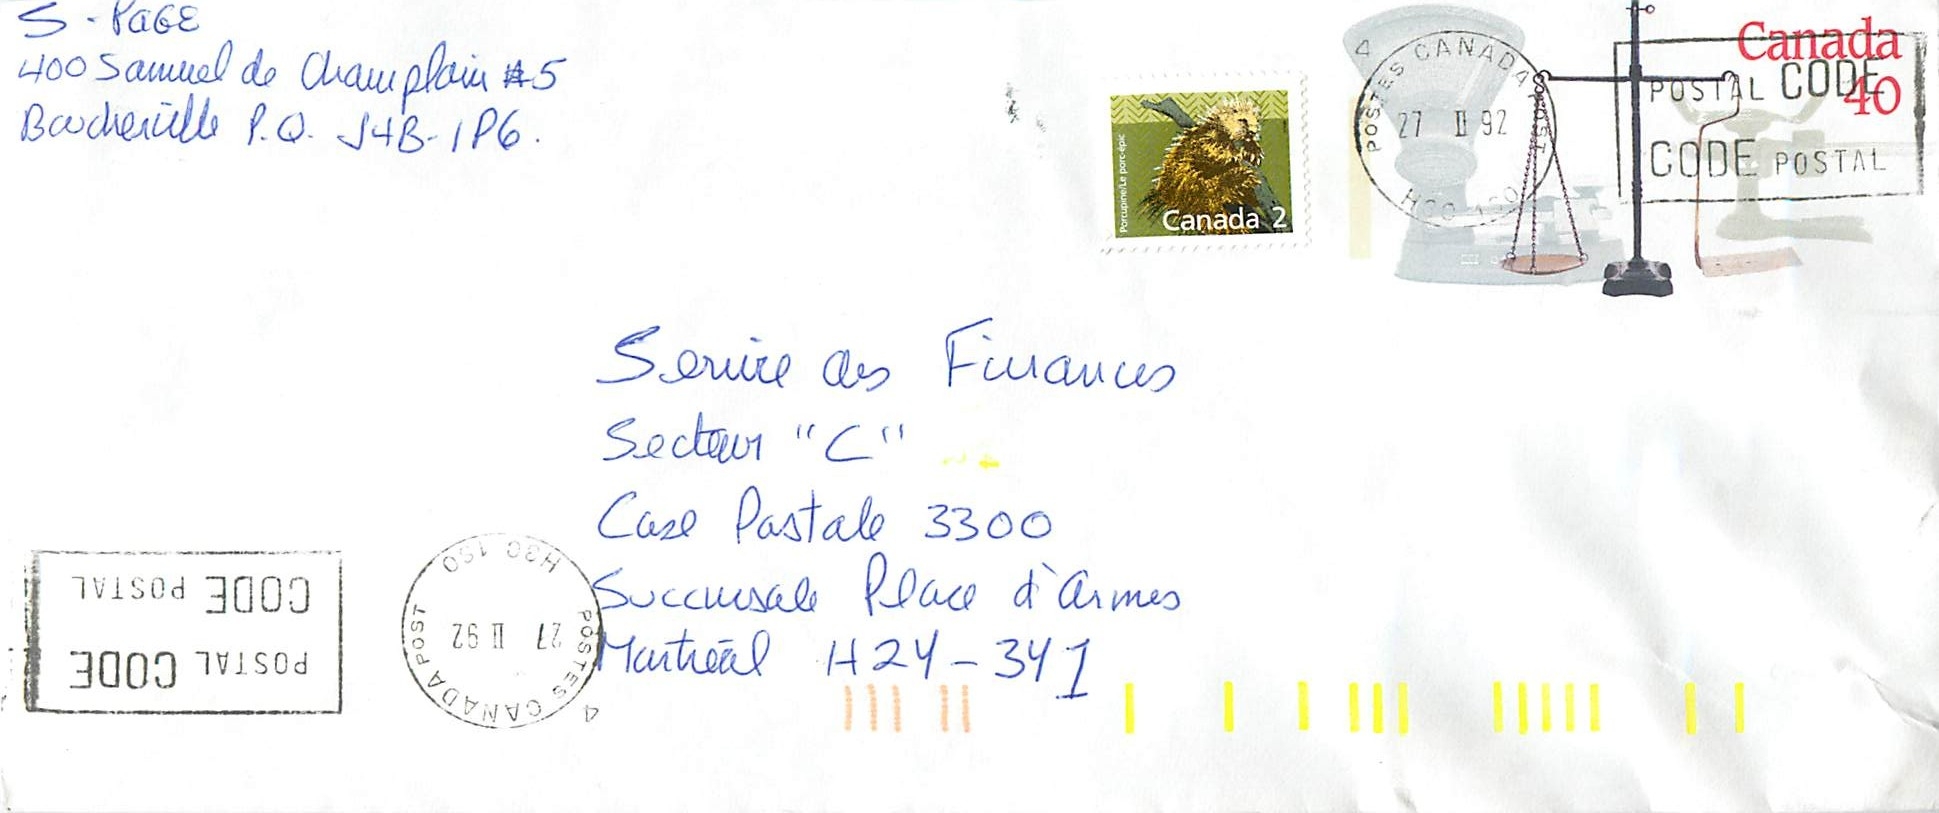 S. PAGE
400 Samuel de Champlain #5
Boucherville P.Q. J4B-1P6.
Porcupine/Le porc-épic
Canada 2
Canada
40
4
POSTES CANADA POST
27 II 92
H3C 1S0
POSTAL CODE
CODE POSTAL
Service des Finances
Secteur "C"
Case Postale 3300
Succursale Place d'Armes
Montréal H2Y-3Y1
POSTAL CODE
CODE POSTAL
4
POSTES CANADA POST
27 II 92
H3C 1S0